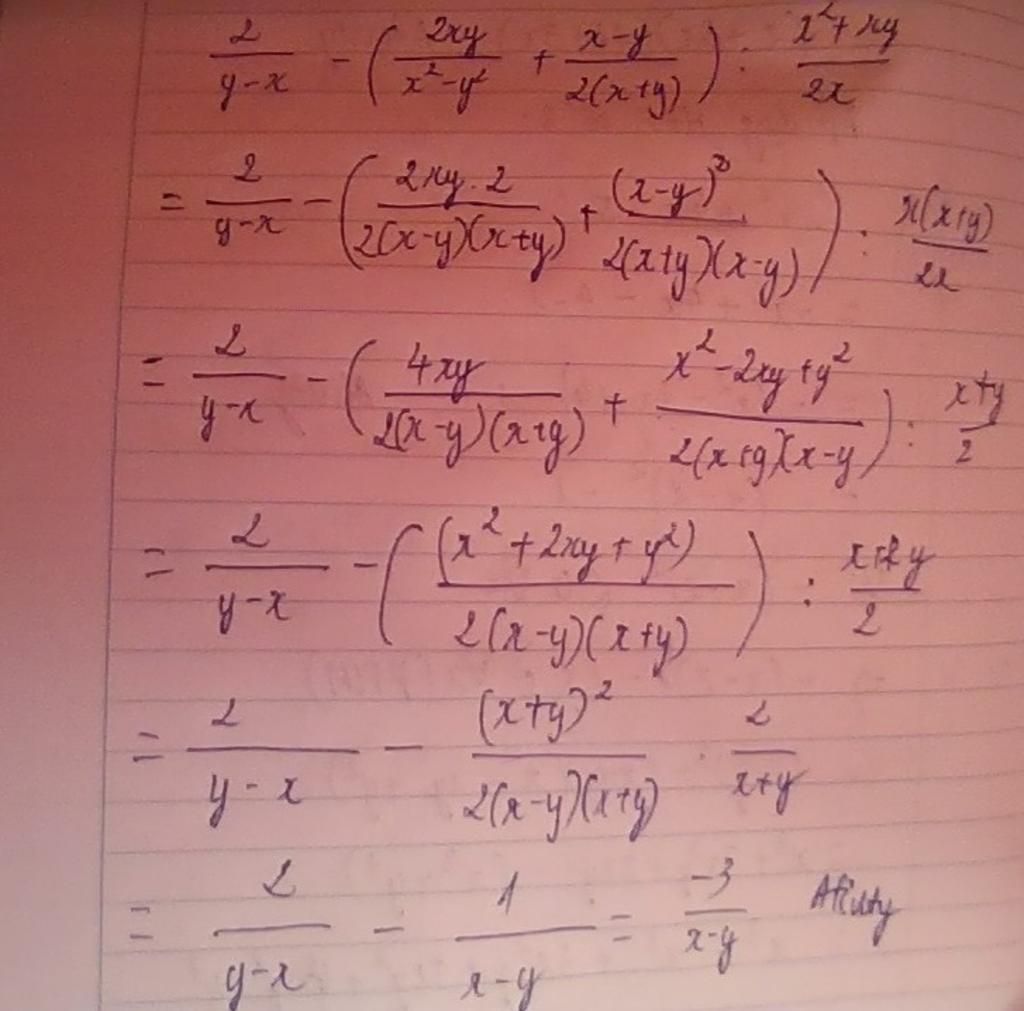 2/(y-x) - (2xy/(x²-y²) + (x-y)/(2(x+y))) : (x²+xy)/(2x)
= 2/(y-x) - (2xy.2/(2(x-y)(x+y)) + (x-y)²/(2(x+y)(x-y))) : x(x+y)/(2x)
= 2/(y-x) - (4xy/(2(x-y)(x+y)) + (x²-2xy+y²)/(2(x+y)(x-y))) : (x+y)/2
= 2/(y-x) - ((x²+2xy+y²)/(2(x-y)(x+y))) : (x+y)/2
= 2/(y-x) - (x+y)²/(2(x-y)(x+y)) . 2/(x+y)
= 2/(y-x) - 1/(x-y) = -3/(x-y)